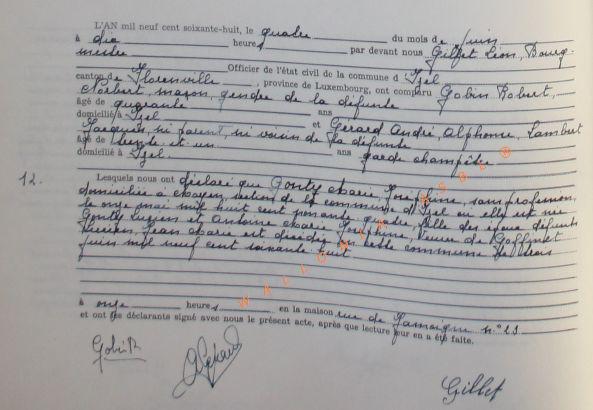 L'AN mil neuf cent soixante-huit, le quatre du mois de juin
à dix heures par devant nous Gillet Léon, Bourg-
mestre
Officier de l'état civil de la commune d' Izel
canton de Florenville, province de Luxembourg, ont comparu Gobin Robert,
Norbert, maçon, gendre de la défunte
âgé de quarante ans
domicilié à Izel et Gérard André, Alphonse, Lambert
Jacques, ni parent, ni voisin de la défunte
âgé de trente et un ans garde champêtre
domicilié à Izel.
12. Lesquels nous ont déclaré que Gonty Marie, Joséphine, sans profession,
domiciliée à Moyen, section de la commune d'Izel où elle est née
le onze mai mil huit cent nonante quatre, fille des époux défunts
Gonty Lucien et Antoine Marie Joséphine, veuve de Goffinet
Lucien, Jean Marie est décédée en cette commune le trois
juin mil neuf cent soixante huit
à onze heures en la maison rue de n° 23
et ont les déclarants signé avec nous le présent acte, après que lecture leur en a été faite.
WALLONIA ASBL ®
Gobin R
Gérard
Gillet